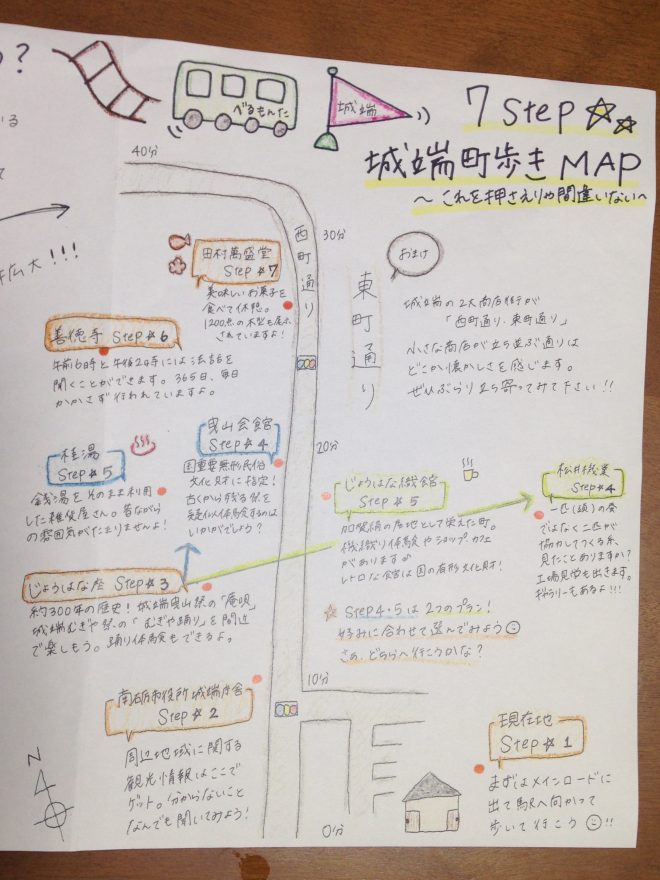 ？
いる
て
広大!!!
べるもんた
城端
7 Step
城端町歩き MAP
〜これを押さえりゃ間違いない〜
40分
30分
西町通り
東町通り
田村萬盛堂
Step 7
美味しいお菓子を
食べて休憩。
1200点の木型も展示
されていますよ!
善徳寺 Step 6
午前6時と午後2時には法話を
聞くことができます。365日、毎日
かかさず行われていますよ。
おまけ
城端の2大商店街が
「西町通り・東町通り」
小さな商店が立ち並ぶ通りは
どこか懐かしさを感じます。
ぜひぶらり立ち寄ってみて下さい!!
桂湯
Step 5
銭湯をそのまま利用
した雑貨屋さん。昔ながら
の雰囲気がたまりませんよ!
曳山会館
Step 4
国重要無形民俗
文化財に指定!
古くから残る祭を
疑似体験するのは
いかがでしょう?
20分
じょうはな織館
Step 5
加賀絹の産地として栄えた町。
機織り体験やショップ、カフェ
がありますよ
レトロな館は国の有形文化財!
松井機業
Step 4
一匹(頭)の蚕
ではなく二匹が
協力してつくる糸、
見たことありますか?
工場見学も出きます。
もあるよ!!!
じょうはな座 Step 3
約300年の歴史! 城端曳山祭の「庵唄」
城端むぎや祭の「むぎや踊り」を間近
で楽しもう。踊り体験もできるよ。
Step4・5は2つのプラン!
好みに合わせて選んでみよう
さぁ、どちらへ行こうかな?
10分
南砺市役所城端庁舎
Step 2
周辺地域に関する
観光情報はここで
ゲット。分からないこと
なんでも聞いてみよう!
現在地
Step 1
まずはメインロードに
出て駅へ向かって
歩いて行こう!!
N
0分